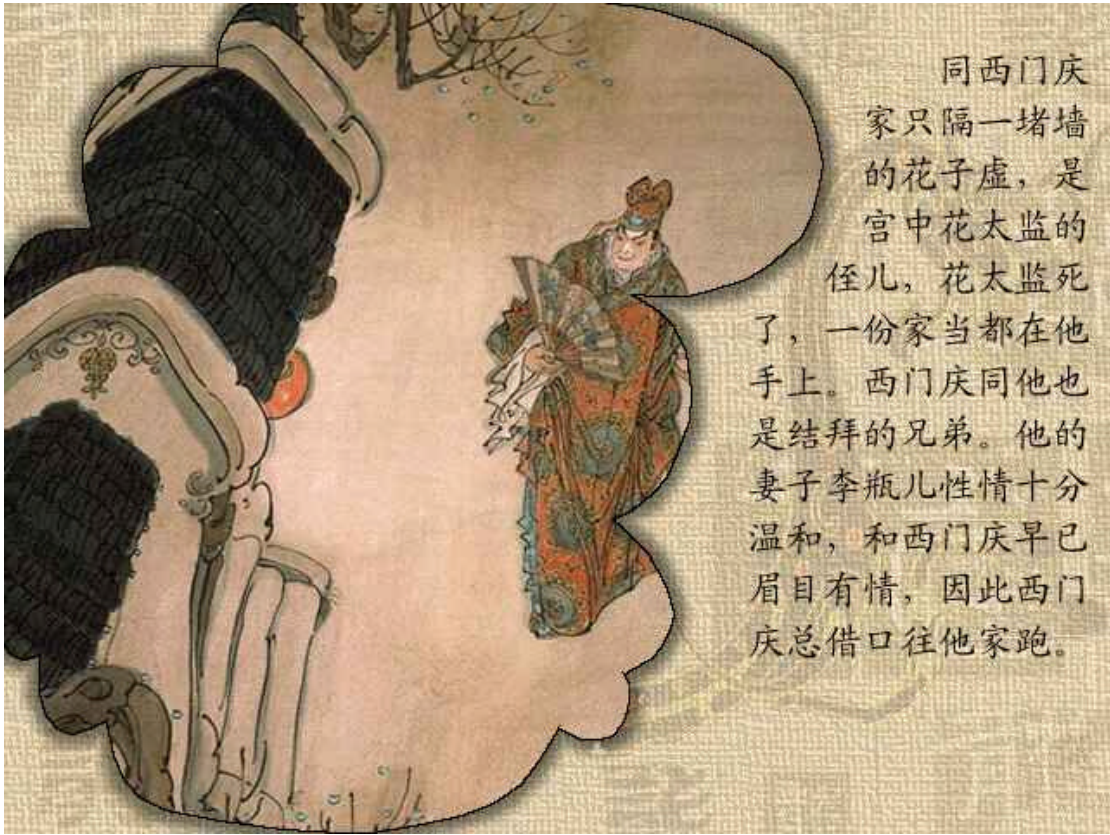 同西门庆
家只隔一堵墙
的花子虚，是
宫中花太监的
侄儿，花太监死
了，一份家当都在他
手上。西门庆同他也
是结拜的兄弟。他的
妻子李瓶儿性情十分
温和，和西门庆早已
眉目有情，因此西门
庆总借口往他家跑。